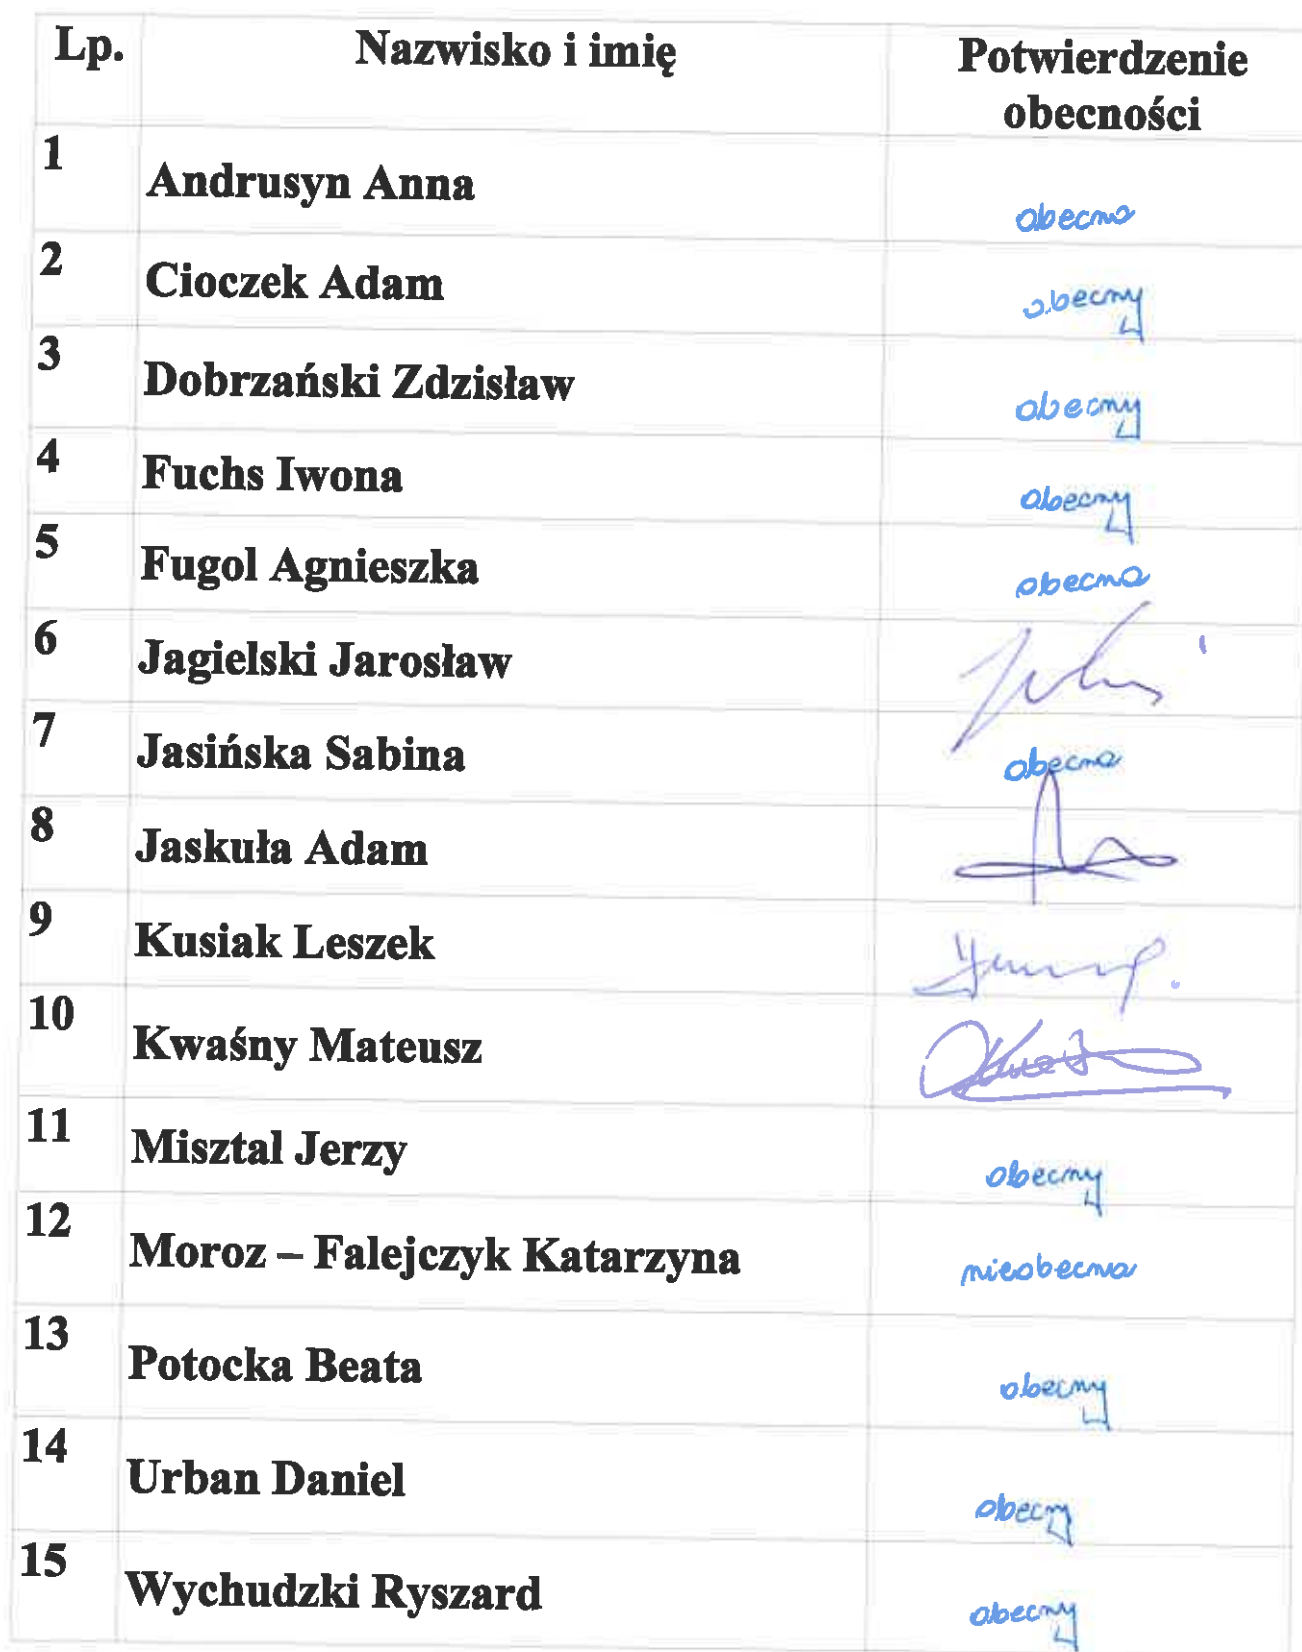 Lp. Nazwisko i imię Potwierdzenie
obecności
1 Andrusyn Anna obecna
2 Cioczek Adam obecny
3 Dobrzański Zdzisław obecny
4 Fuchs Iwona obecny
5 Fugol Agnieszka obecna
6 Jagielski Jarosław
7 Jasińska Sabina obecna
8 Jaskuła Adam
9 Kusiak Leszek
10 Kwaśny Mateusz
11 Misztal Jerzy obecny
12 Moroz – Falejczyk Katarzyna nieobecna
13 Potocka Beata obecny
14 Urban Daniel obecny
15 Wychudzki Ryszard obecny